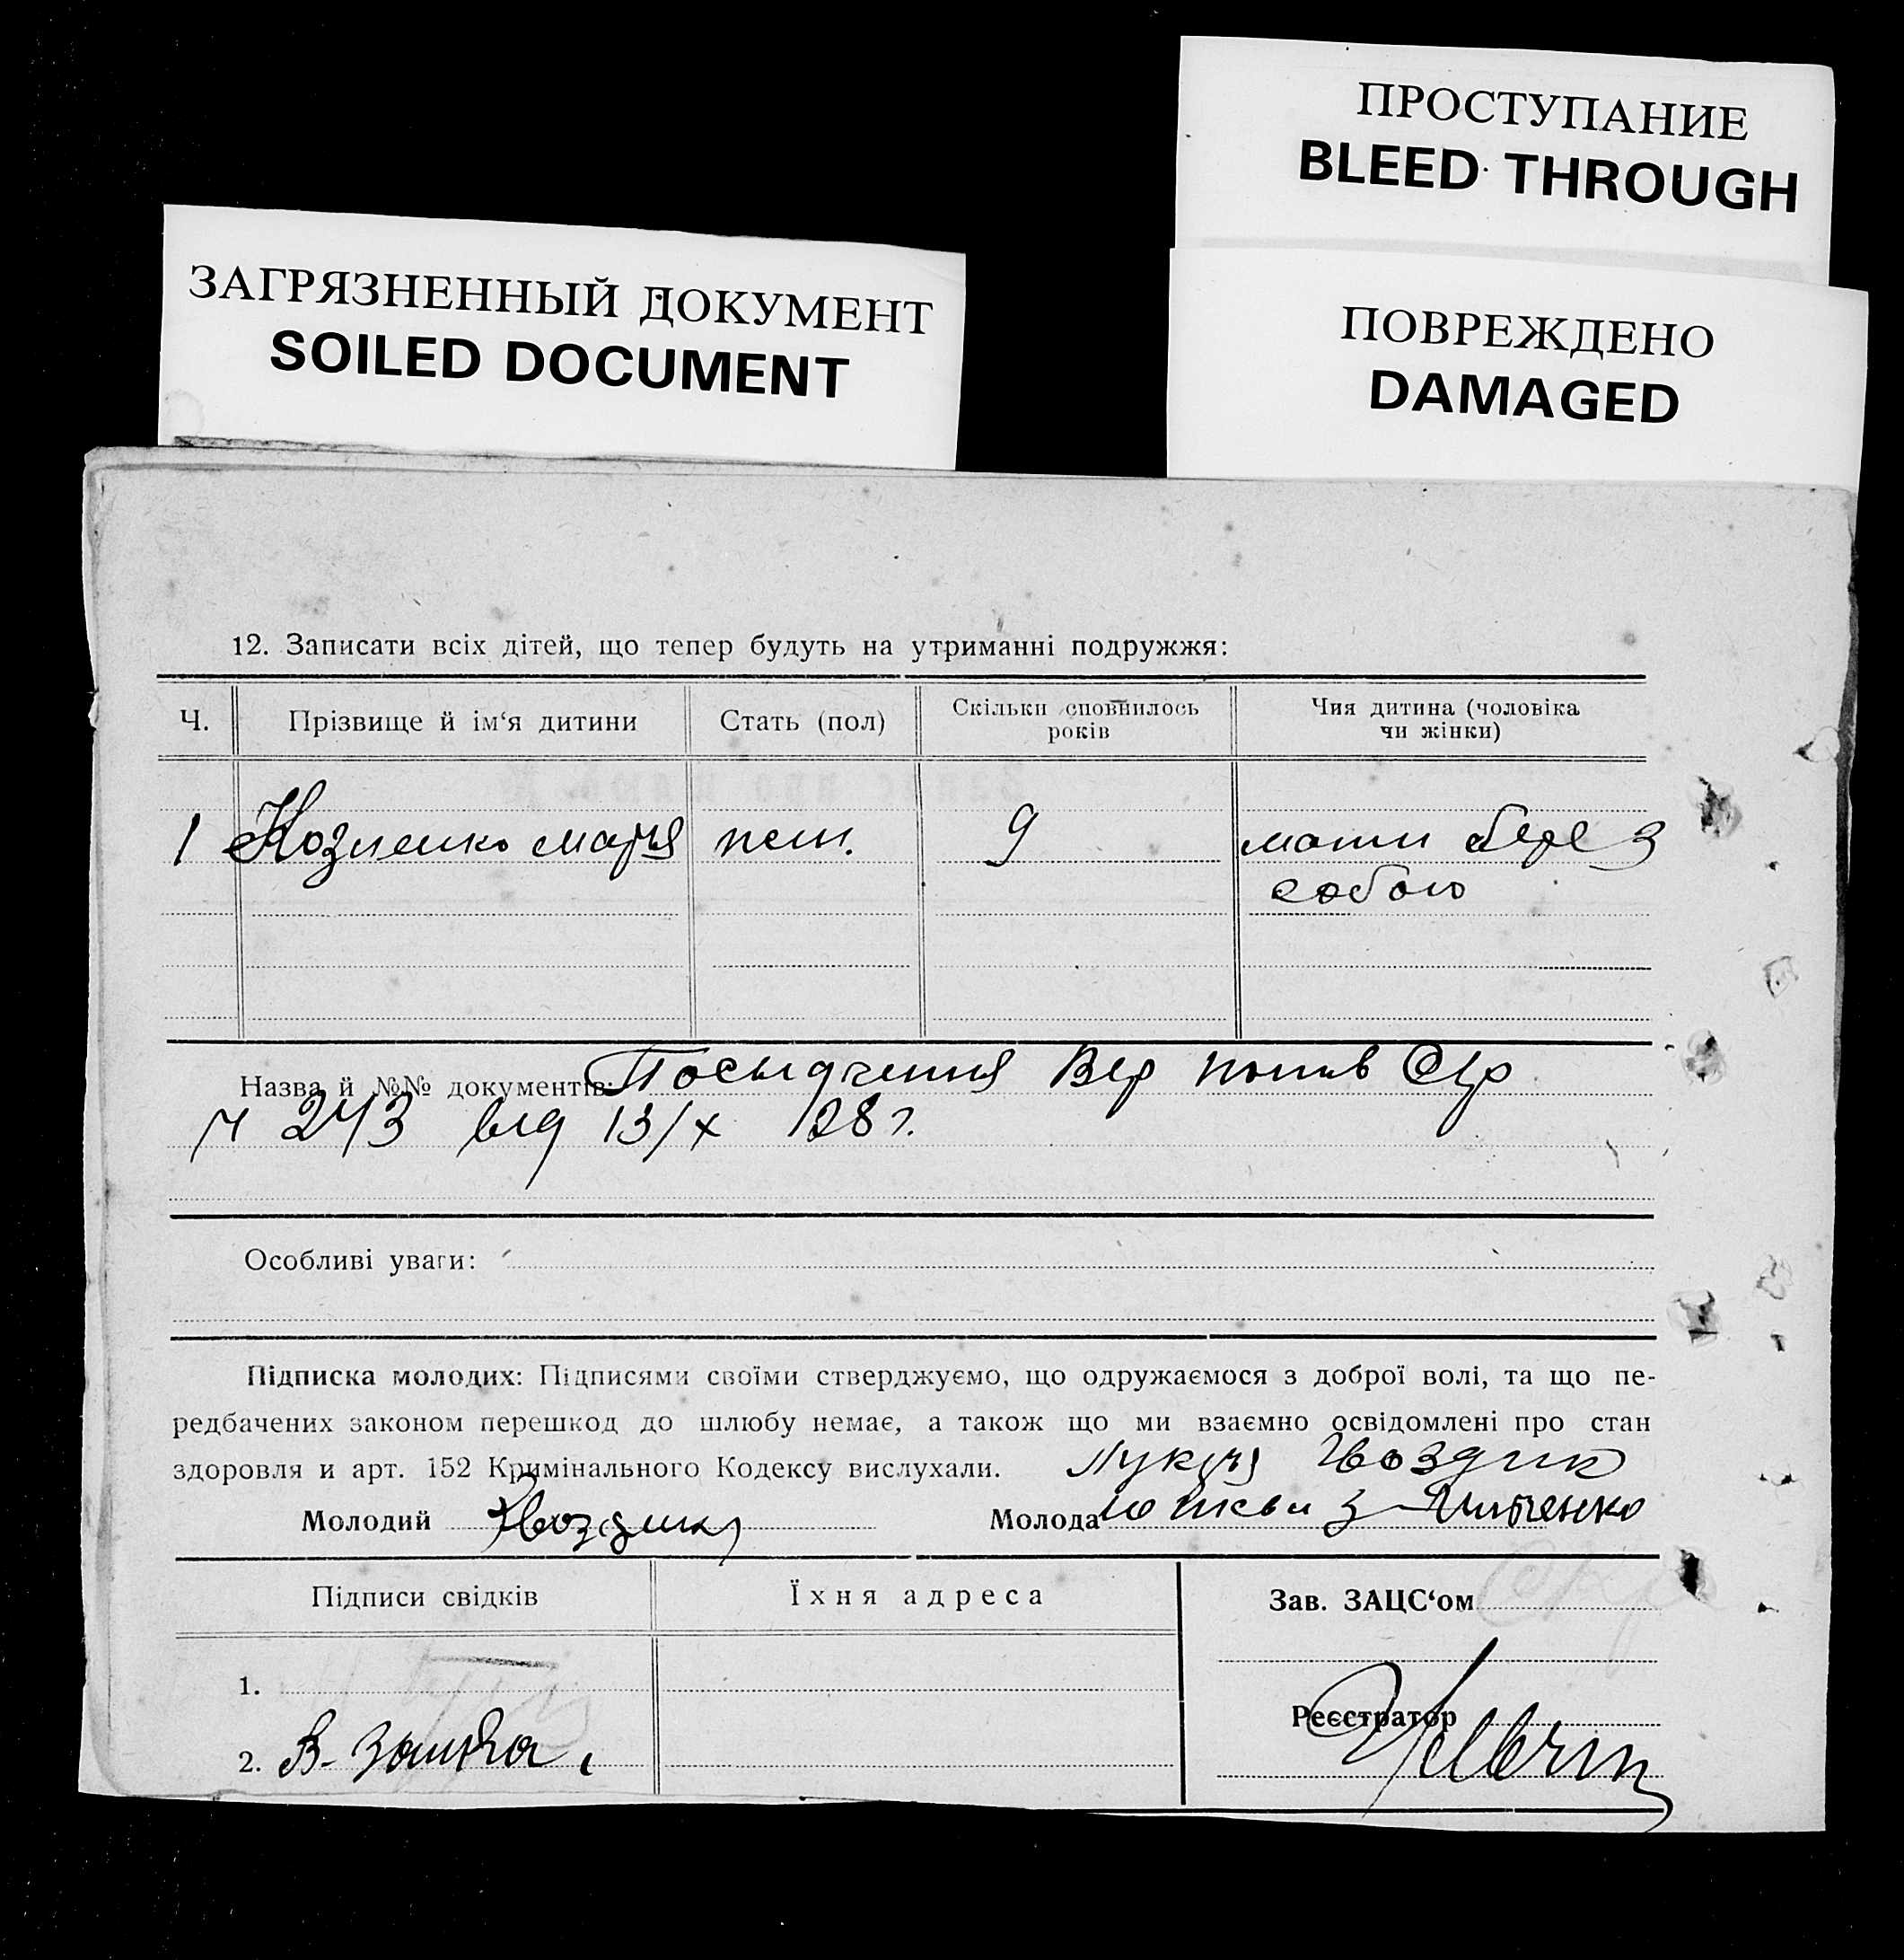 ПРОСТУПАНИЕ
BLEED THROUGH
ЗАГРЯЗНЕННЫЙ ДОКУМЕНТ
SOILED DOCUMENT
ПОВРЕЖДЕНО
DAMAGED
12. Записати всіх дітей, що тепер будуть на утриманні подружжя:
Ч. Прізвище й ім‘я дитини Стать (пол) Скільки сповнилось Чия дитина (чоловіка
років чи жінки)
1 9 мати бере з
собою
Назва й №№ документів: Посвідчення
ч 243 від 13/X 28 г.
Особливі уваги:
Підписка молодих: Підписями своїми стверджуємо, що одружаємося з доброї волі, та що пе-
редбачених законом перешкод до шлюбу немає, а також що ми взаємно освідомлені про стан
здоровля и арт. 152 Кримінального Кодексу вислухали. Гвоздик
Молодий Гвоздик Молода
Підписи свідків Їхня адреса Зав. ЗАЦС‘ом
1.
Реєстратор
2. В.